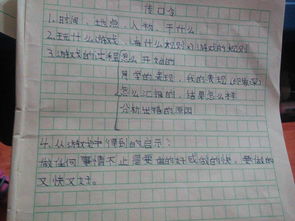 传口令
1.时间、地点、人物、干什么
2.玩什么(游戏),有什么规则(游戏的规则)
3.游戏的过程是怎么开始的
同学的表现,我的表现
怎么汇报的,结果怎么样
分析出错的原因
4.从游戏中得到的启示:
做任何事情不止需要做的好或做的快,要做的
又快又好。